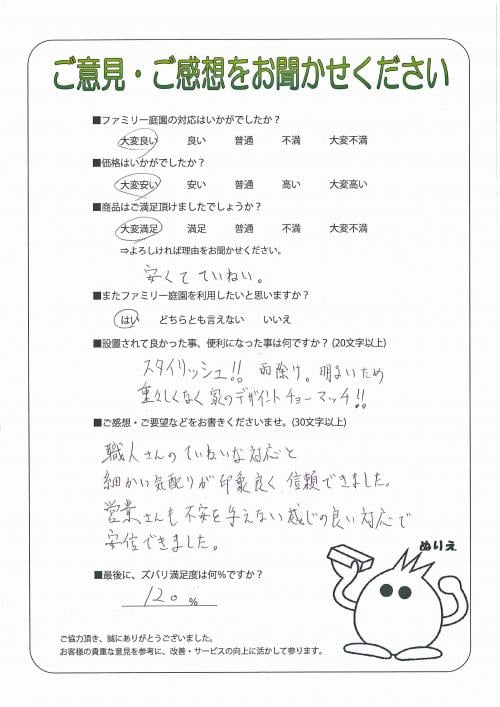 ご意見・ご感想をお聞かせください
■ファミリー庭園の対応はいかがでしたか？
大変良い 良い 普通 不満 大変不満
■価格はいかがでしたか？
大変安い 安い 普通 高い 大変高い
■商品はご満足頂けましたでしょうか？
大変満足 満足 普通 不満 大変不満
⇒よろしければ理由をお聞かせください。
安くて ていねい。
■またファミリー庭園を利用したいと思いますか？
はい どちらとも言えない いいえ
■設置されて良かった事、便利になった事は何ですか？(20文字以上)
スタイリッシュ!! 雨除け。明るいため
重々しくなく 家のデザイントチョーマッチ!!
■ご感想・ご要望などをお書きくださいませ。(30文字以上)
職人さんのていねいな対応と
細かい気配りが印象良く信頼できました。
営業さんも不安を与えない感じの良い対応で
安位できました。
ぬりえ
■最後に、ズバリ満足度は何％ですか？
120 %
ご協力頂き、誠にありがとうございました。
お客様の貴重な意見を参考に、改善・サービスの向上に活かして参ります。